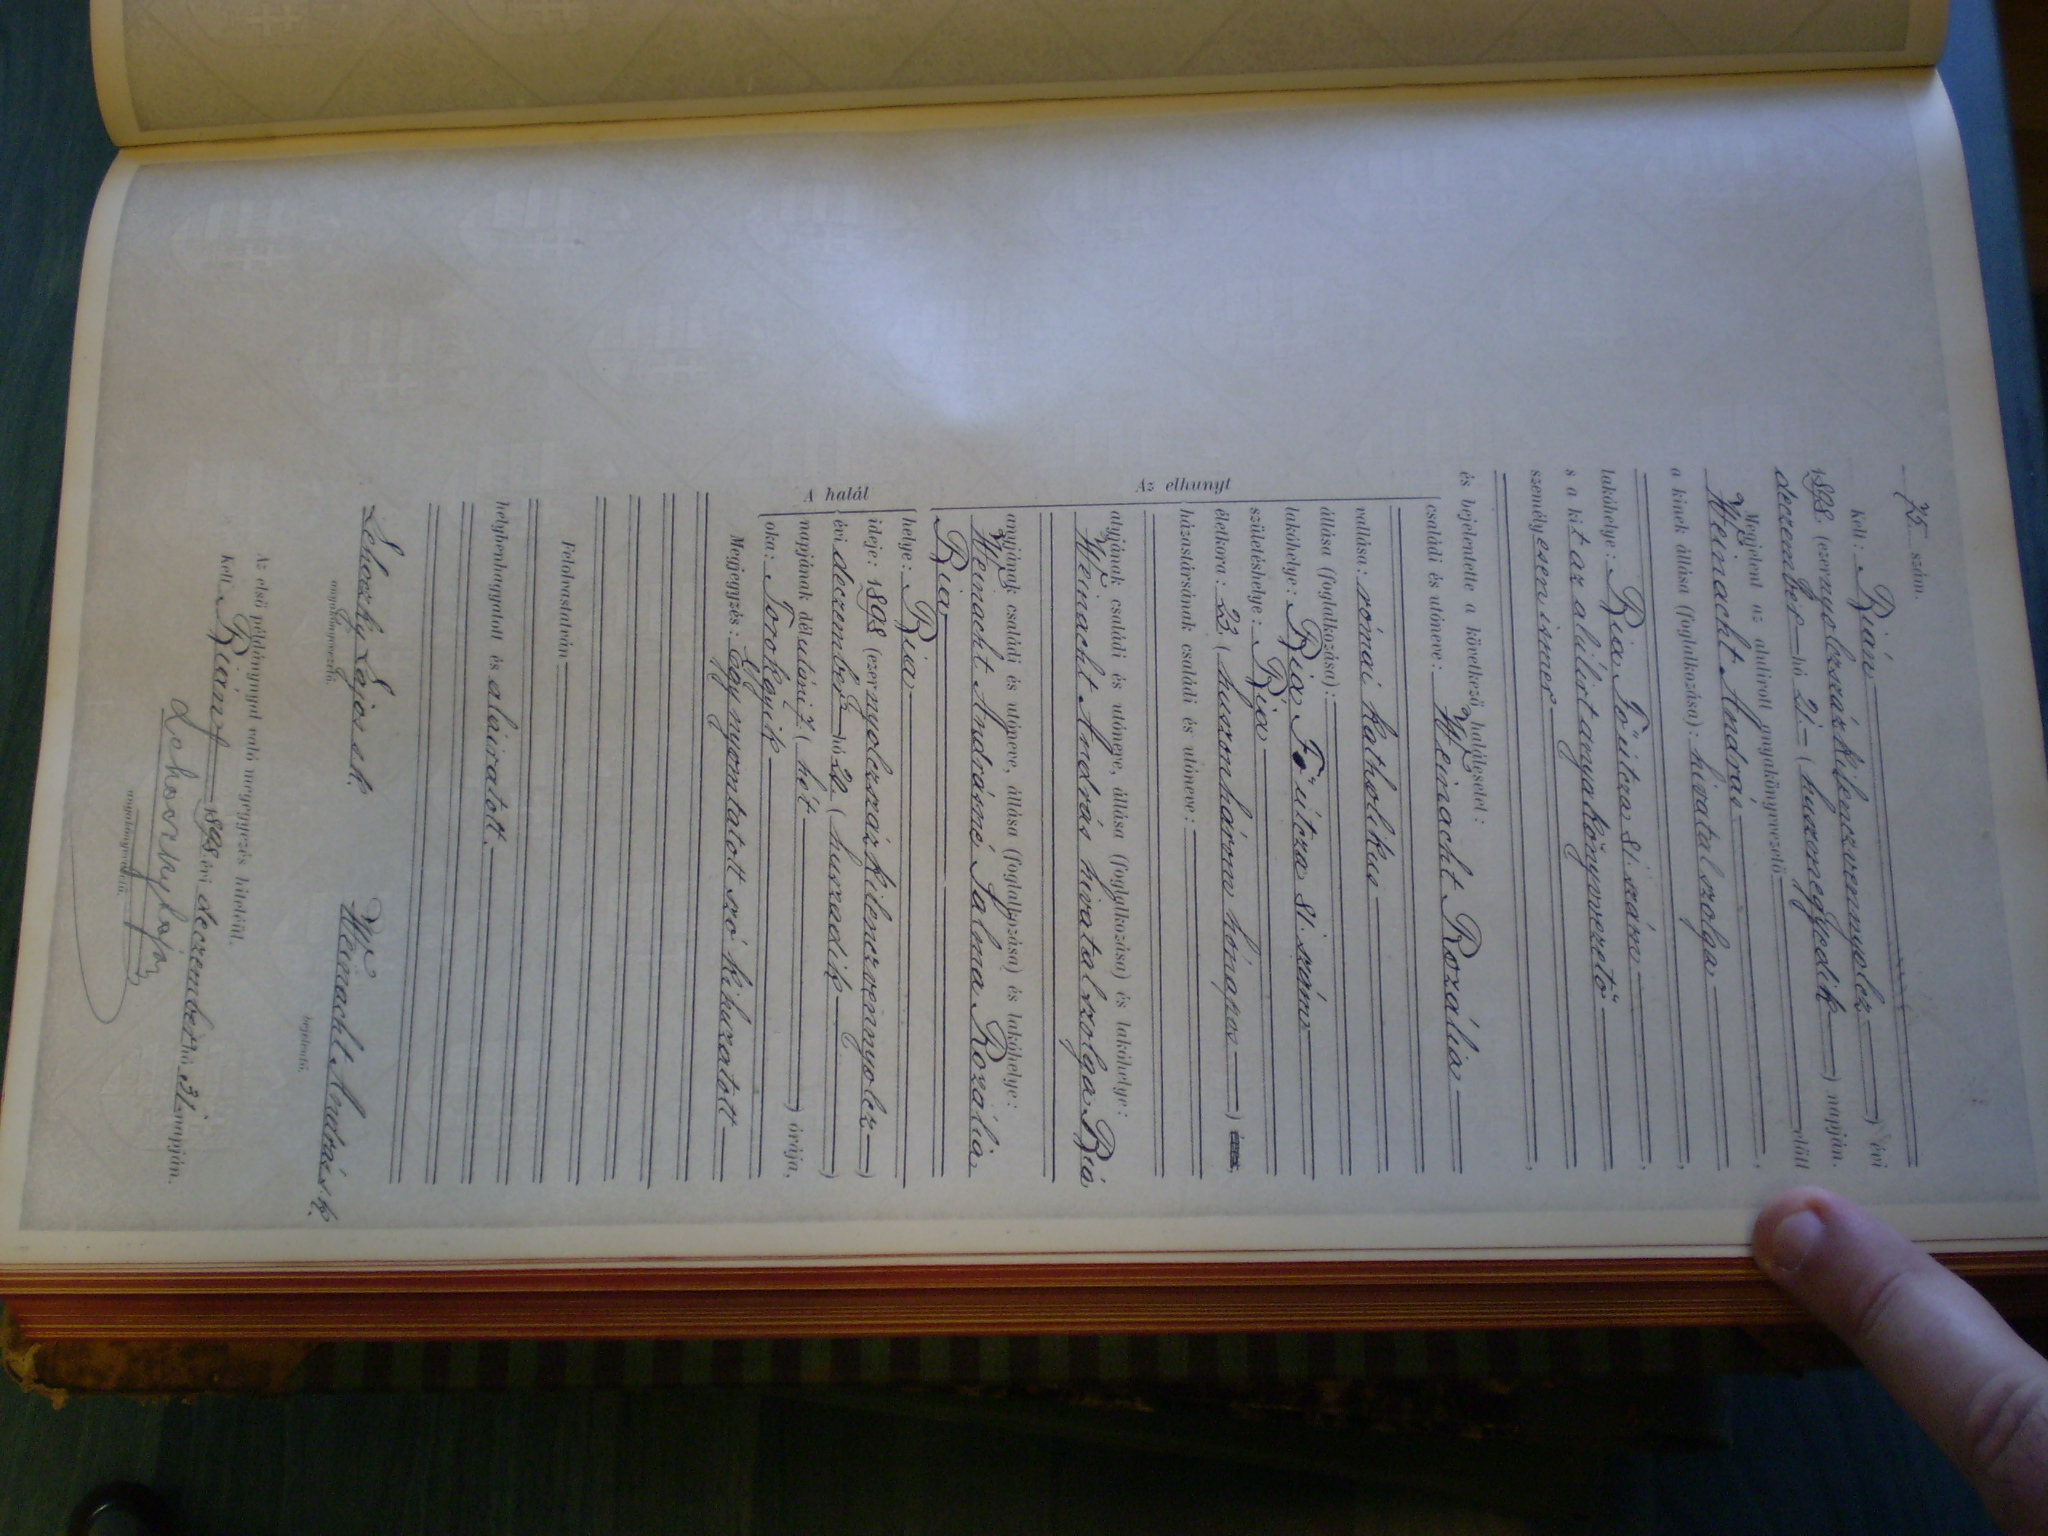 75 szám.
Kelt: Bián 
1898 (ezernyolczszázkilenczvennyolcz) évi
deczember hó 21. (huszonegyedik) napján.
Megjelent az alulirott anyakönyvvezető előtt
Weinacht András,
a kinek állása (foglalkozása): hivatalszolga,
lakóhelye: Bia Fő útcza 81. szám,
s a kit az alólirt anyakönyvvezető
személyesen ismer,
és bejelentette a következő halálesetet:
Az elhunyt
családi és utóneve: Weinacht Rozália
vallása: római katholikus
állása (foglalkozása):
lakóhelye: Bia, Fő útcza 81. szám
születéshelye: Bia
életkora: 23 (huszonhárom hónapos) éves,
házastársának családi és utóneve:
atyjának családi és utóneve, állása (foglalkozása) és lakóhelye:
Weinacht András hivatalszolga Bia
anyjának családi és utóneve, állása (foglalkozása) és lakóhelye:
Weinacht Andrásné Salma Rozália
Bia
A halál
helye: Bia
ideje: 1898 (ezernyolczszázkilenczvennyolcz)
évi deczember hó 20 (huszadik)
napjának délutáni 7 (hét) órája,
oka: Torokgyík
Megjegyzés: Egy nyomtatott szó kihuzatott
Felolvastatván
helybenhagyatott és aláiratott.
Lehoczky Lajos s.k. Weinacht András s.k.
anyakönyvvezető. bejelentő.
Az első példánynyal való megegyezés hiteléül.
Kelt: Bián, 1898. évi deczember hó 31 napján.
Lehoczky Lajos
anyakönyvvezető.